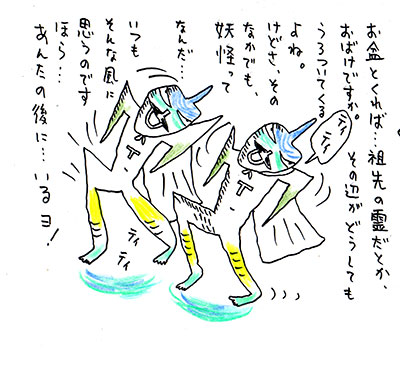 お盆とくれば…祖先の霊だとか、
おばけですか。その辺がどうしても
うろついてくる
よね。
けどさ、その
なかでも、
妖怪って
なんだ…
いつも
そんな風に
思うのです
ほら…
あんたの後に…いるヨ!
ティ
ティ
ティ
ティ
T
T